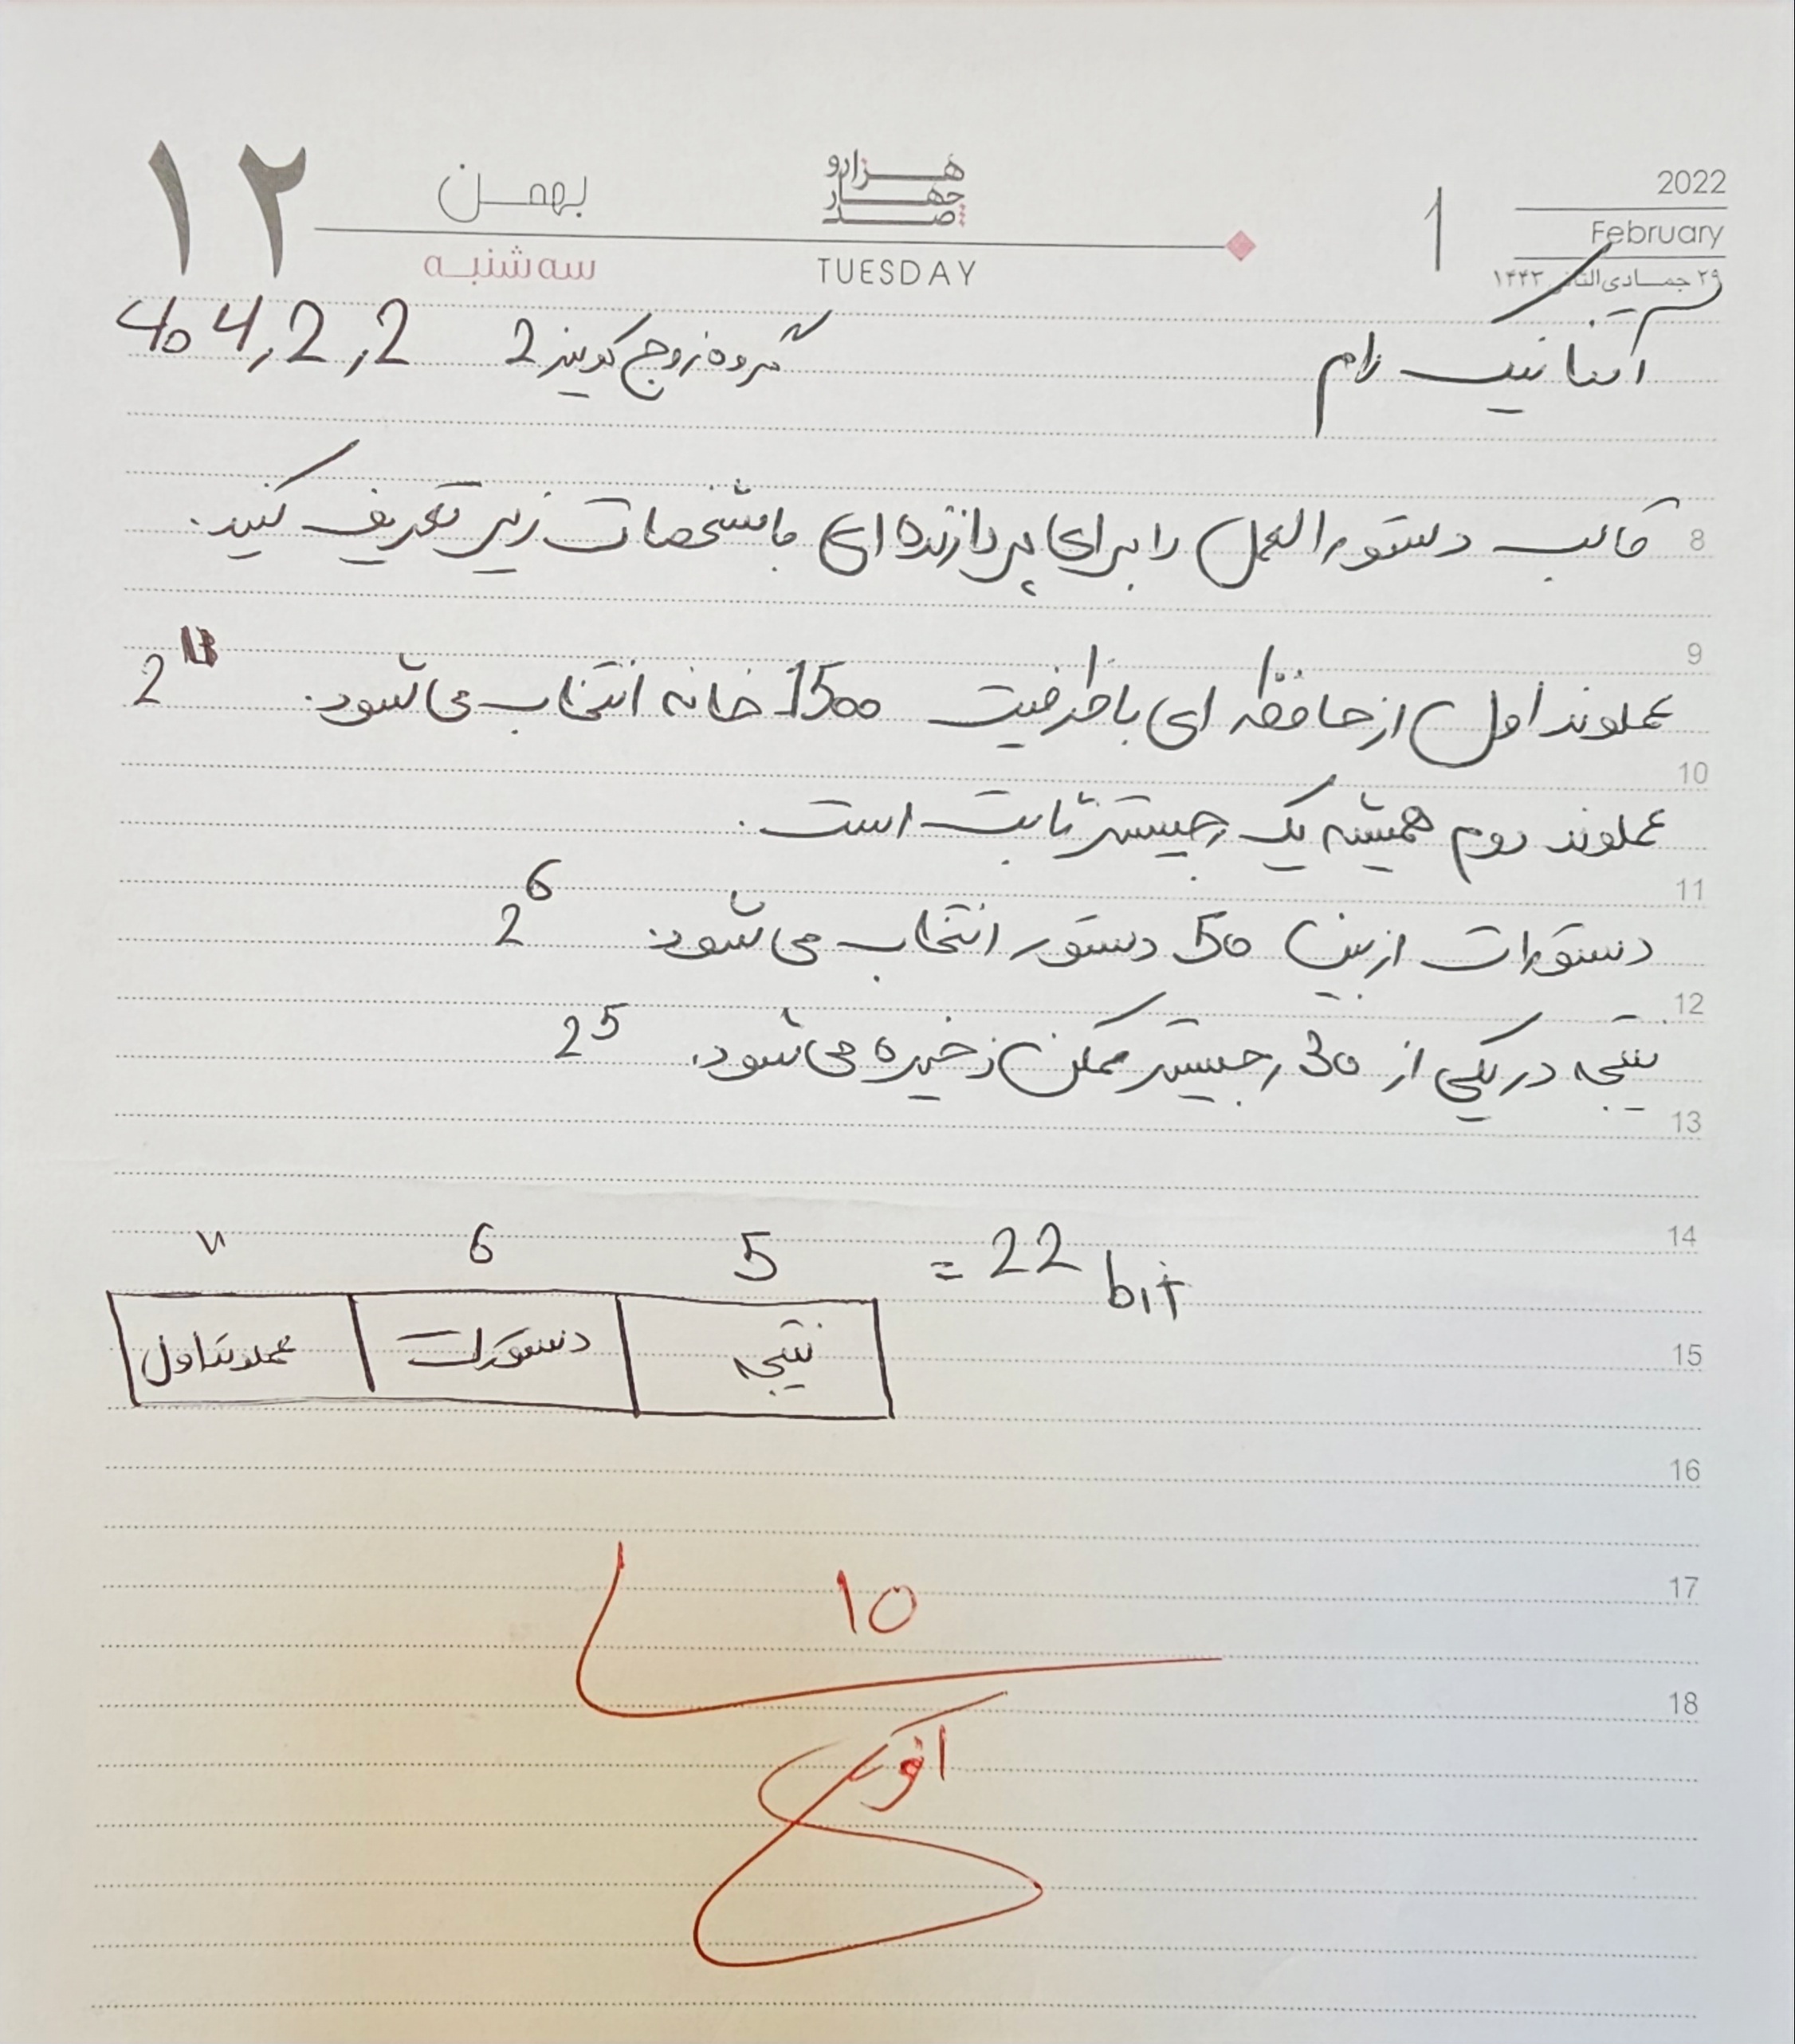 ۱۲ بهمن هزار و چهار صد 1 2022
February
سه‌شنبه TUESDAY ۲۹ جمادی الثانی ۱۴۴۳
آیناز نیک رام گروه زوج کوییز 2 404,2,2
قالب دستورالعمل را برای پردازنده ای با مشخصات زیر تعریف کنید. 8
9
عملوند اول از حافظه ای با ظرفیت 1500 خانه انتخاب می شود. 2^11
10
عملوند دوم همیشه یک رجیستر ثابت است.
11
دستورات از بین 50 دستور انتخاب می شود. 2^6
12
نتیجه در یکی از 30 رجیستر ممکن ذخیره می شود. 2^5
13
14
11 6 5 = 22 bit
عملوند اول دستورات نتیجه 15
16
10 17
18